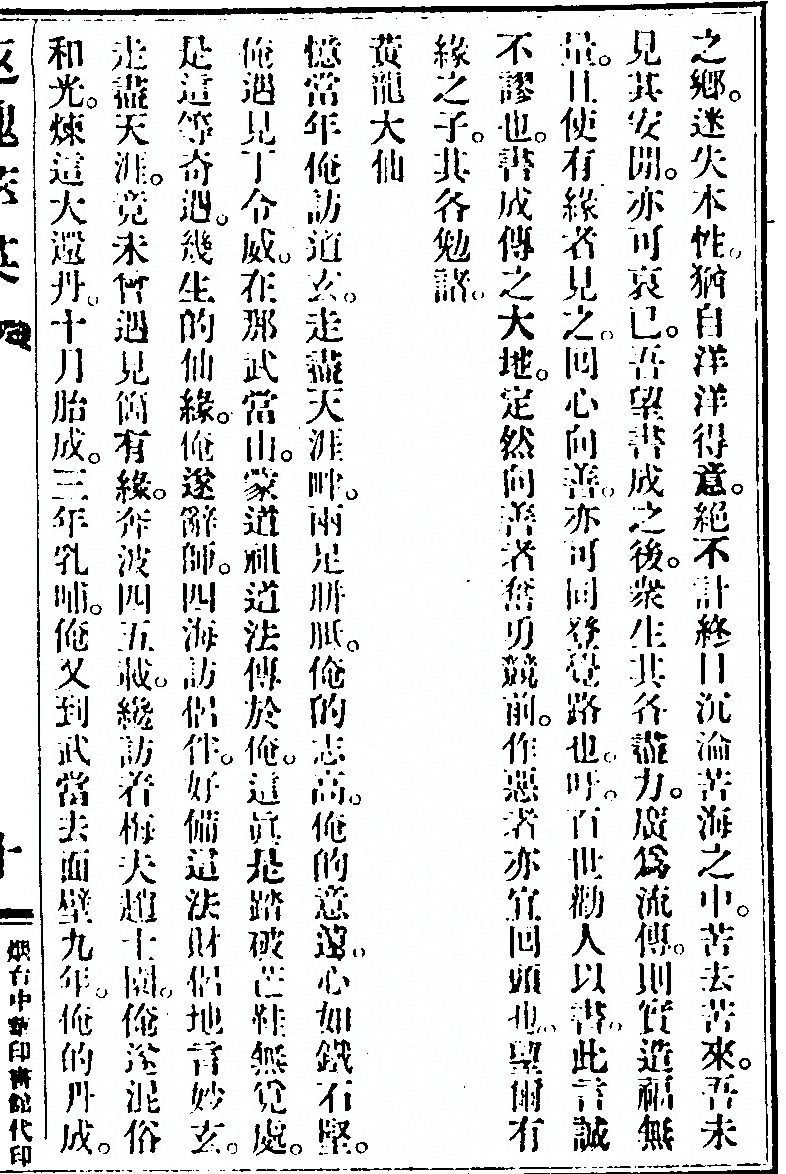 之鄉。迷失本性。猶自洋洋得意。絕不計終日沉淪苦海之中。苦去苦來。吾未
見其安閒。亦可哀已。吾望書成之後。衆生其各盡力。廣爲流傳。則實造福無
量。且使有緣者見之。回心向善。亦可同登覺路也。吁。百世勸人以書。此言誠
不謬也。書成傳之大地。定然向善者奮勇競前。作惡者亦宜回頭也。望爾有
緣之子。其各勉諸。
黃龍大仙
憶當年俺訪道玄。走盡天涯畔。兩足胼胝。俺的志高。俺的意遠。心如鐵石堅。
俺遇見丁令威。在那武當山。蒙道祖道法傳於俺。這眞是踏破芒鞋無覓處。
是這等奇遇。幾生的仙緣。俺遂辭師。四海訪侶伴。好備這法財侶地言妙玄。
走盡天涯。竟未曾遇見箇有緣。奔波四五載。纔訪着梅夫趙士園。俺遂混俗
和光。煉這大還丹。十月胎成。三年乳哺。俺又到武當去面壁九年。俺的丹成。
十
烟台中新印書館代印